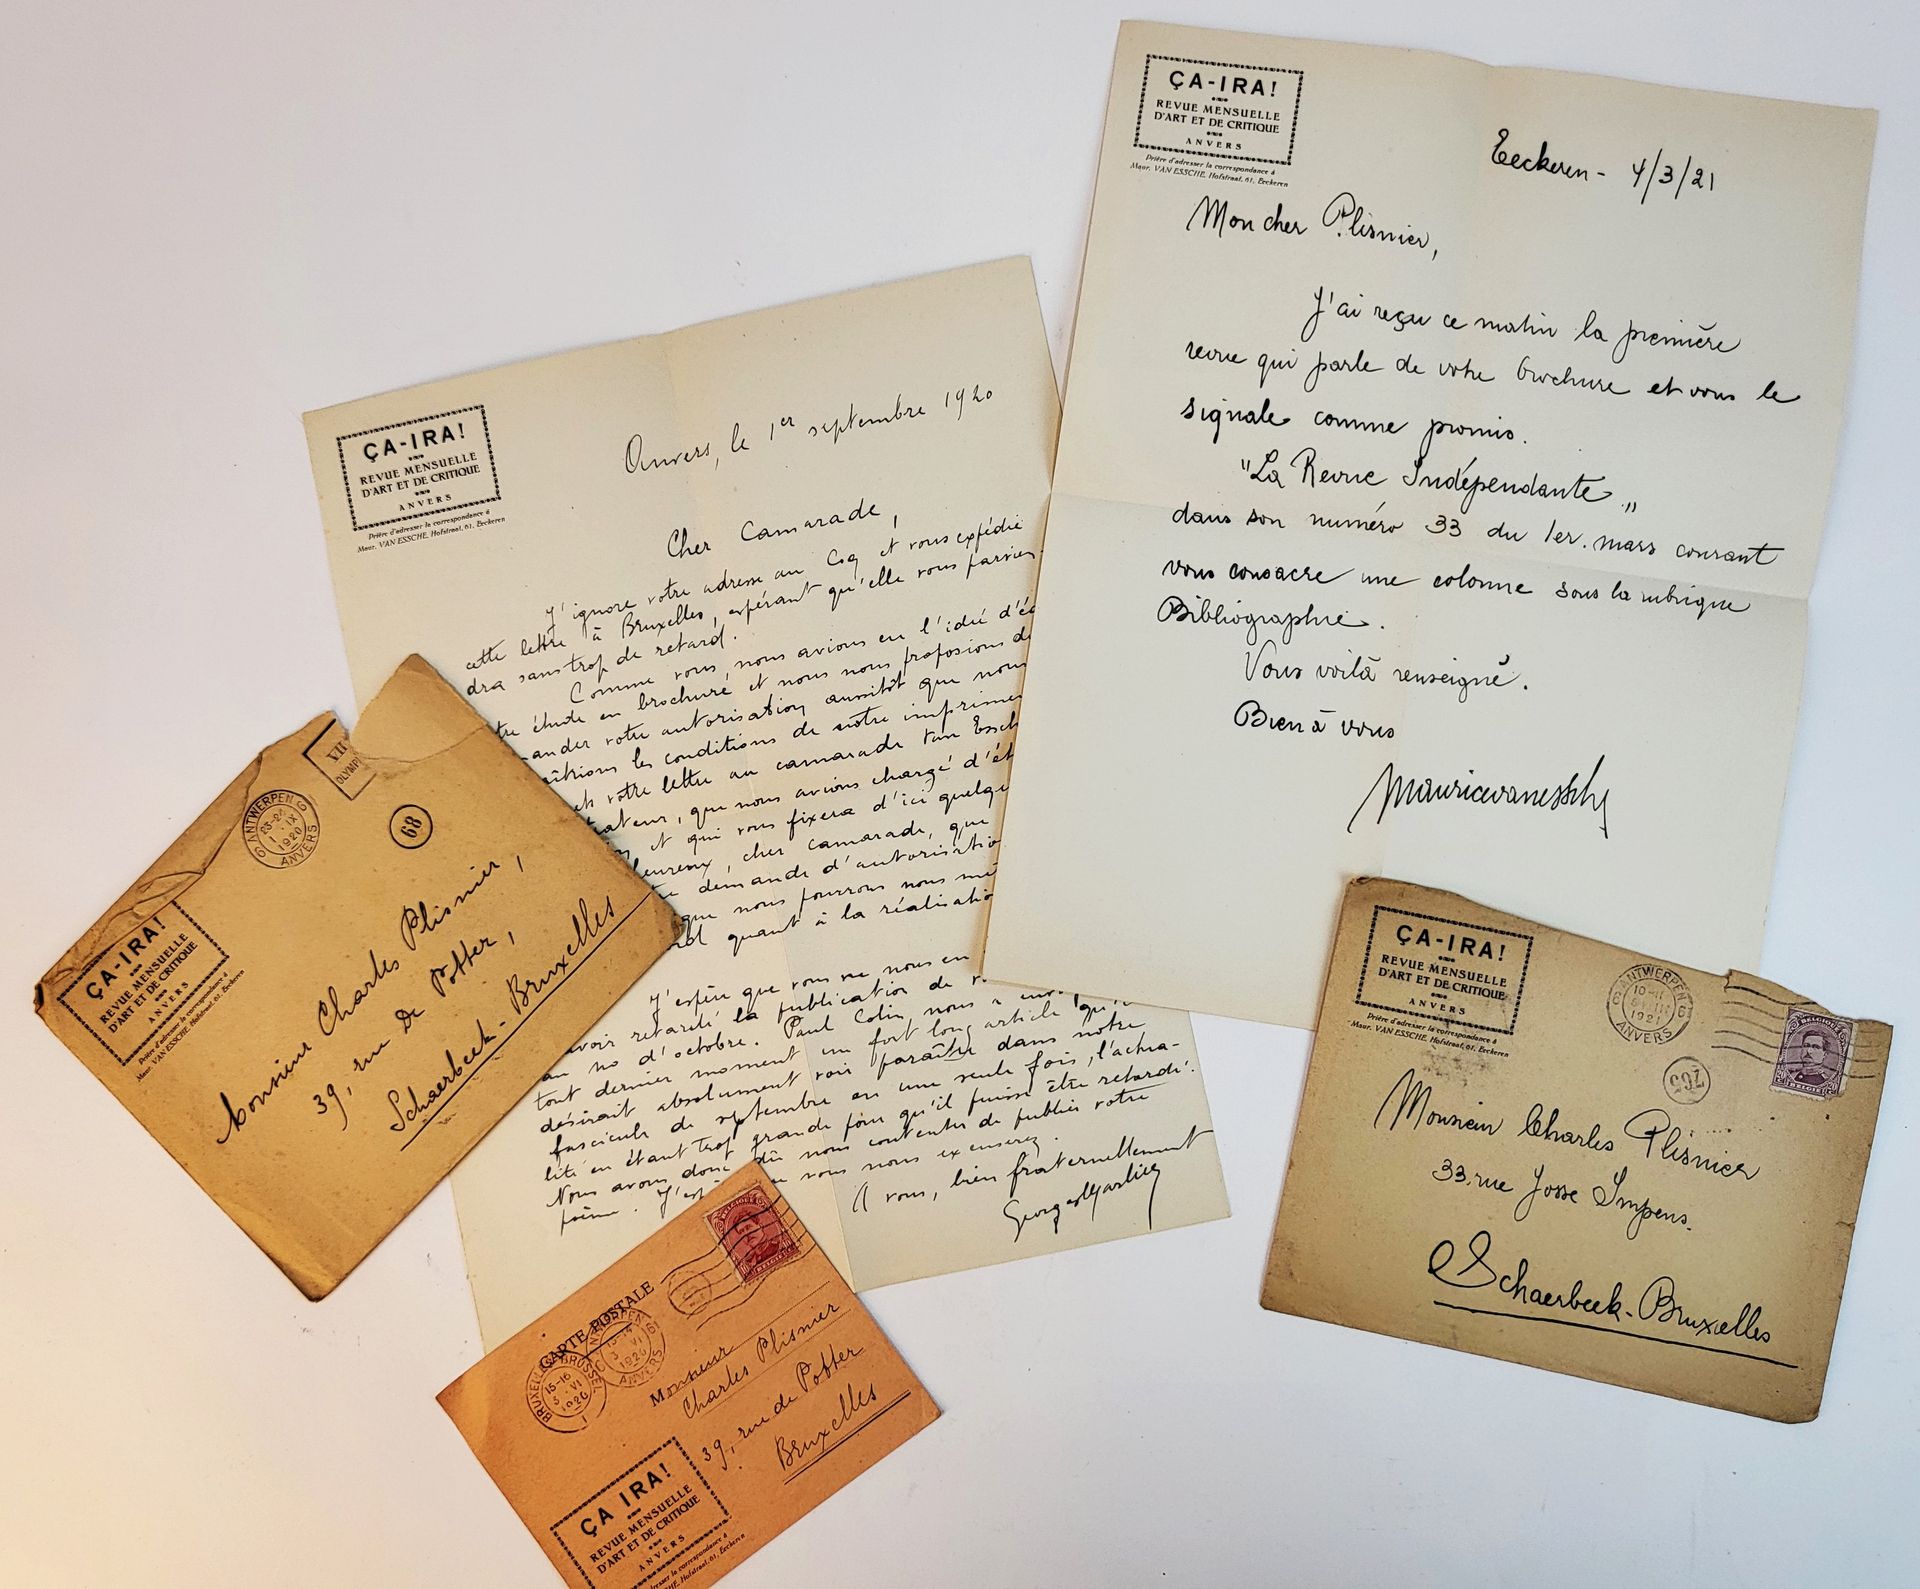 ÇA-IRA!
REVUE MENSUELLE
D'ART ET DE CRITIQUE
ANVERS
Prière d'adresser la correspondance à
Maur. VAN ESSCHE, Hofstraat, 61, Eeckeren
Eeckeren - 4/3/21
Mon cher Plisnier,
J'ai reçu ce matin la première
revue qui parle de votre brochure et vous le
signale comme promis.
"La Revue Indépendante"
dans son numéro 33 du 1er. mars courant
vous consacre une colonne sous la rubrique
Bibliographie.
Vous voilà renseigné.
Bien à vous
Mauricevanessche
ÇA-IRA!
REVUE MENSUELLE
D'ART ET DE CRITIQUE
ANVERS
Prière d'adresser la correspondance à
Maur. VAN ESSCHE, Hofstraat, 61, Eeckeren
Anvers, le 1er septembre 1920
Cher Camarade,
J'ignore votre adresse au Coq et vous expédie
cette lettre à Bruxelles, espérant qu'elle vous parvien-
dra sans trop de retard.
Comme vous, nous avions eu l'idée d'é
tre étude en brochure et nous nous proposions de
ander votre autorisation aussitôt que nous
les conditions de notre imprimeu
votre lettre au camarade Van Essch
ateur, que nous avions chargé d'ét
et qui vous fixera d'ici quelqu
heureux, cher camarade, que
demande d'autorisatio
que nous pourrons nous
quant à la réalisatio
J'espère que vous ne nous en
avoir retardé la publication de
au no d'octobre. Paul Colin nous a
tout dernier moment un fort long article qu'il
désirait absolument voir paraître dans notre
fascicule de septembre en une seule fois, l'actua-
lité en étant trop grande pour qu'il puisse être retardé.
Nous avons donc dû nous contenter de publier votre
poème. nous nous excuserez.
A vous, bien fraternellement
Georges Marlier
VII
OLYMPI
ANTWERPEN 6
1 IX
1920
ANVERS
68
ÇA-IRA!
REVUE MENSUELLE
D'ART ET DE CRITIQUE
ANVERS
Prière d'adresser la correspondance à
Maur. VAN ESSCHE, Hofstraat, 61, Eeckeren
Monsieur Charles Plisnier,
39, rue De Potter,
Schaerbeek-Bruxelles
ÇA-IRA!
REVUE MENSUELLE
D'ART ET DE CRITIQUE
ANVERS
Prière d'adresser la correspondance à
Maur. VAN ESSCHE, Hofstraat, 61, Eeckeren
ANTWERPEN 6
1921
ANVERS
BELGIQUE
BELGIE
Monsieur Charles Plisnier
33, rue Josse Impens.
Schaerbeek-Bruxelles
BELGIQUE
BELGIE
CARTE POSTALE
ANTWERPEN 6
3 VI
1920
ANVERS
BRUXELLES BRUSSEL
15-16
3 VI
1920
1
Monsieur
Charles Plisnier
39, rue de Potter
Bruxelles
ÇA IRA!
REVUE MENSUELLE
D'ART ET DE CRITIQUE
ANVERS
resser la correspondance à
SCHE, Hofstraat, 61, Eeckeren